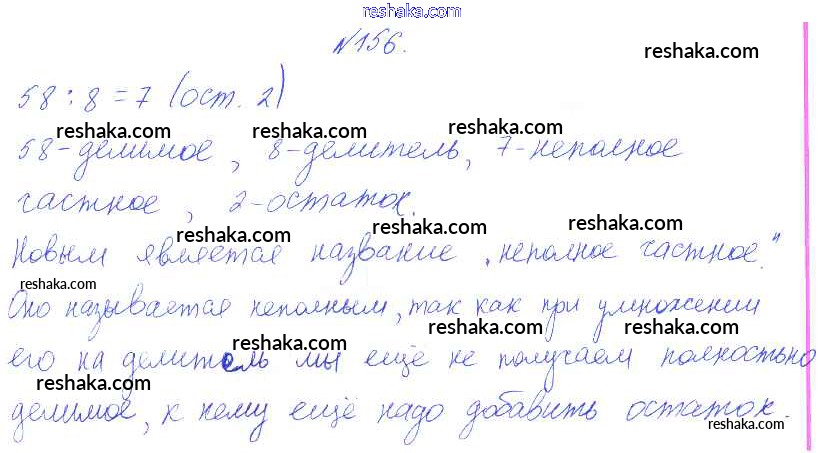 reshaka.com
№156.
reshaka.com
58 : 8 = 7 (ост. 2)
reshaka.com
reshaka.com
reshaka.com
58-делимое, 8-делитель, 7-неполное
частное, 2-остаток.
reshaka.com
reshaka.com
Новым является название „неполное частное."
reshaka.com
Оно называется неполным, так как при умножении
reshaka.com
reshaka.com
его на делитель мы ещё не получаем полностью
reshaka.com
reshaka.com
делимое, к нему ещё надо добавить остаток.
reshaka.com
reshaka.com